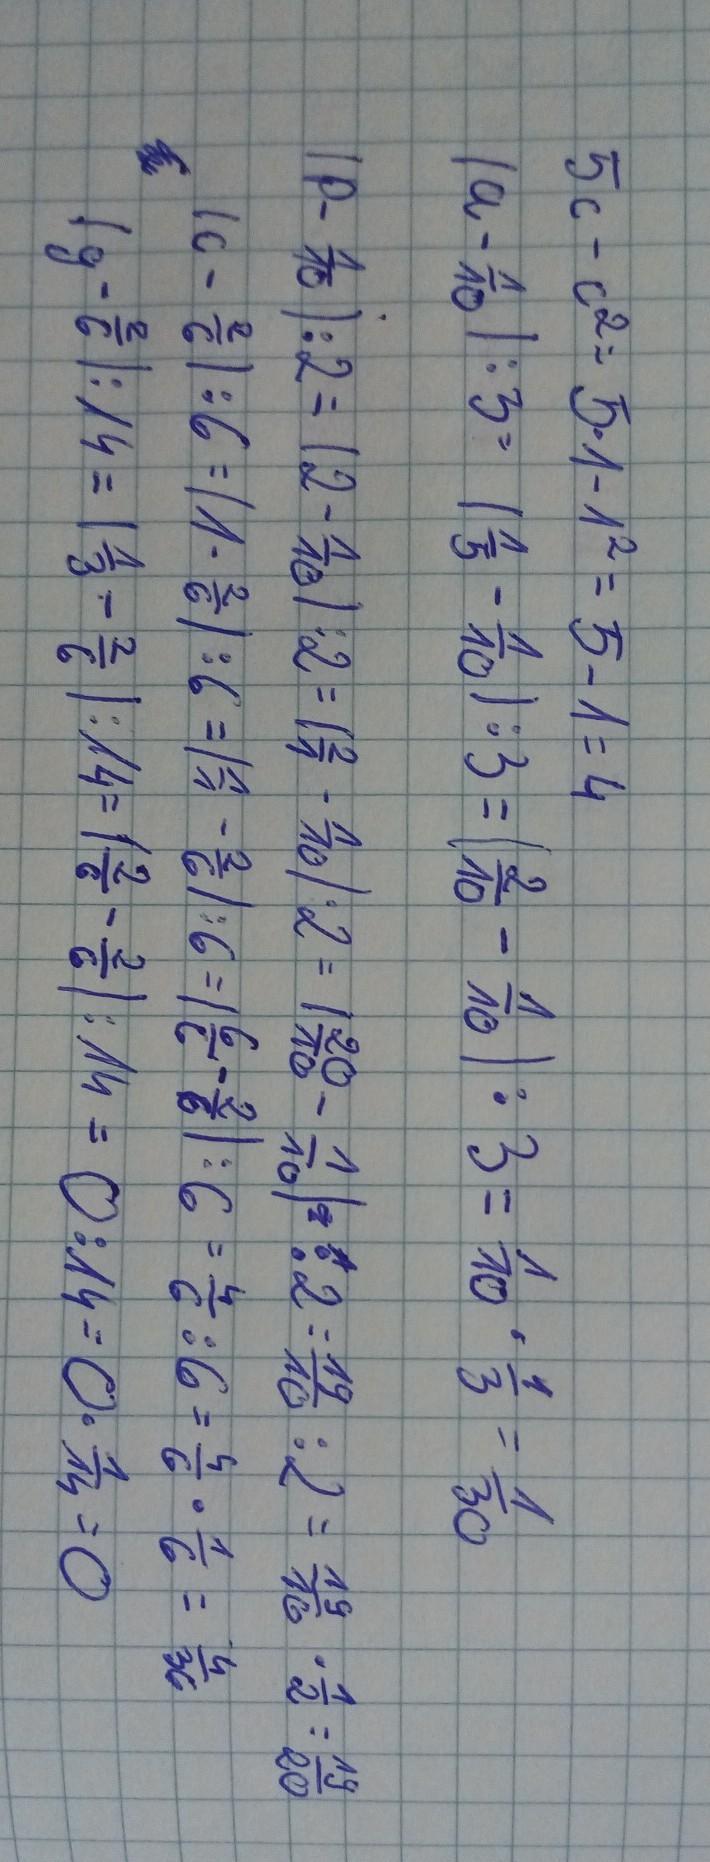 5c - c² = 5·1 - 1² = 5 - 1 = 4
(a - 1/10) : 3 = (1/5 - 1/10) : 3 = (2/10 - 1/10) : 3 = 1/10 · 1/3 = 1/30
(p - 1/10) : 2 = (2 - 1/10) : 2 = (2/1 - 1/10) : 2 = (20/10 - 1/10) : 2 = 19/10 : 2 = 19/10 · 1/2 = 19/20
(c - 2/6) : 6 = (1 - 2/6) : 6 = (1/1 - 2/6) : 6 = (6/6 - 2/6) : 6 = 4/6 : 6 = 4/6 · 1/6 = 4/36
(y - 2/6) : 14 = (1/3 - 2/6) : 14 = (2/6 - 2/6) : 14 = 0 : 14 = 0 · 1/14 = 0